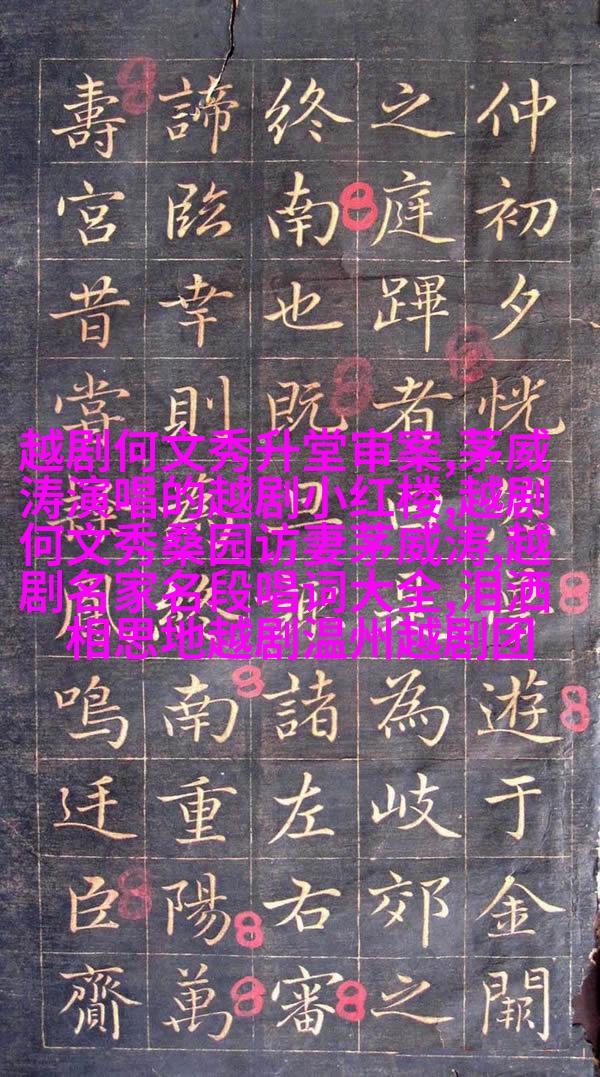 越剧何文秀升堂审案,茅威
涛演唱的越剧小红楼,越剧
何文秀桑园访妻茅威涛,越
剧名家名段唱词大全,泪洒
相思地越剧温州越剧团
仲初夕恍遊于金闕
之庭蹕者為岐郊之
終南也既旦諸左右審
諦臨幸則終南重陽萬
壽宮昔嘗周鳴廷臣齎